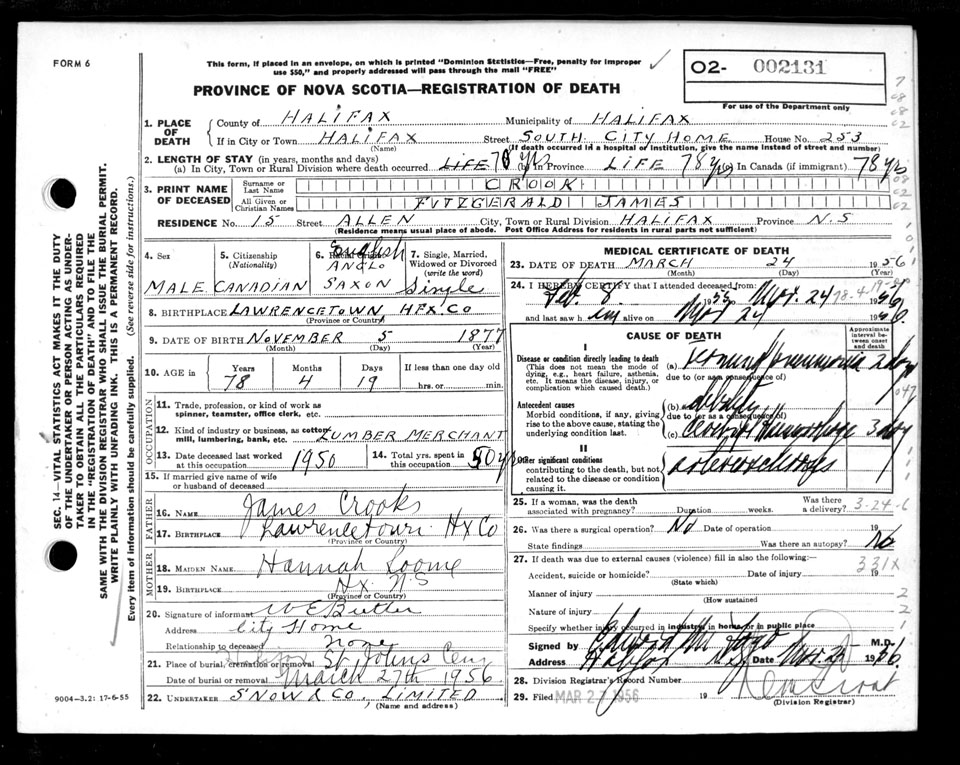 FORM 6
This form, if placed in an envelope, on which is printed "Dominion Statistics—Free, penalty for improper
use $50," and properly addressed will pass through the mail "FREE"
02- 002131
For use of the Department only
PROVINCE OF NOVA SCOTIA—REGISTRATION OF DEATH
1. PLACE OF DEATH
County of HALIFAX Municipality of HALIFAX
If in City or Town HALIFAX Street SOUTH. CITY HOME House No. 253
(Name) (If death occurred in a hospital of institution, give the name instead of street and number)
2. LENGTH OF STAY (in years, months and days)
(a) In City, Town or Rural Division where death occurred LIFE 78 yrs (b) in Province LIFE 78 yrs (c) In Canada (if immigrant) 78 yrs
3. PRINT NAME OF DECEASED
Surname or Last Name CROOK
All Given or Christian Names FITZGERALD JAMES
RESIDENCE No. 15 Street ALLEN City, Town or Rural Division HALIFAX Province N.S
(Residence means usual place of abode. Post Office Address for residents in rural parts not sufficient)
4. Sex MALE
5. Citizenship (Nationality) CANADIAN
6. Racial Origin English ANGLO SAXON
7. Single, Married, Widowed or Divorced (write the word) Single
8. BIRTHPLACE LAWRENCETOWN, HFX. CO
(Province or Country)
9. DATE OF BIRTH NOVEMBER 5 1877
(Month) (Day) (Year)
10. AGE in Years Months Days If less than one day old
78 4 19 hrs. or min.
OCCUPATION
11. Trade, profession, or kind of work as
spinner, teamster, office clerk, etc.
12. Kind of industry or business, as cotton
mill, lumbering, bank, etc. LUMBER MERCHANT
13. Date deceased last worked
at this occupation 1950
14. Total yrs. spent in
this occupation 50 yrs
15. If married give name of wife
or husband of deceased
FATHER
16. NAME James Crooks
17. BIRTHPLACE Lawrencetown Hx Co
(Province or Country)
MOTHER
18. MAIDEN NAME Hannah Loome
19. BIRTHPLACE Hx. N.S
(Province or Country)
20. Signature of informant W E Butler
Address City Home
Relationship to deceased none
21. Place of burial, cremation or removal St. Johns Cem
Date of burial or removal March 27th 1956
22. UNDERTAKER SNOW & CO., LIMITED
(Name and address)
9004—3.2: 17-6-55
MEDICAL CERTIFICATE OF DEATH
23. DATE OF DEATH MARCH 24 1956
(Month) (Day) (Year)
24. I HEREBY CERTIFY that I attended deceased from:
Feb. 8 1955 Mar. 24 1956
and last saw h im alive on Mar 24 1956
CAUSE OF DEATH
Approximate interval between onset and death
I
Disease or condition directly leading to death
(This does not mean the mode of
dying, e.g., heart failure, asthenia,
etc. It means the disease, injury, or
complication which caused death.)
(a) terminal pneumonia 2 day
due to (or as a consequence of)
Antecedent causes
Morbid conditions, if any, giving
rise to the above cause, stating the
underlying condition last.
(b)
due to (or as a consequence of)
(c) Cerebral Hemorrhage 3 day
II
Other significant conditions
contributing to the death, but not
related to the disease or condition
causing it.
arteriosclerosis
25. If a woman, was the death
associated with pregnancy? Duration weeks. Was there a delivery? 3-24-6
26. Was there a surgical operation? No Date of operation 19
State findings Was there an autopsy? No
27. If death was due to external causes (violence) fill in also the following:—
331X
Accident, suicide or homicide? Date of injury 19
(State which)
Manner of injury 2
(How sustained
Nature of injury 2
Specify whether injury occurred in industry in home, or in public place
Signed by M.D.
Address Halifax N.S Date Mar. 26 1956
28. Division Registrar's Record Number
29. Filed MAR 27 1956 19
(Division Registrar)
SEC. 14—VITAL STATISTICS ACT MAKES IT THE DUTY
OF THE UNDERTAKER OR PERSON ACTING AS UNDER-
TAKER TO OBTAIN ALL THE PARTICULARS REQUIRED
IN THE "REGISTRATION OF DEATH" AND TO FILE THE
SAME WITH THE DIVISION REGISTRAR WHO SHALL ISSUE THE BURIAL PERMIT.
WRITE PLAINLY WITH UNFADING INK. THIS IS A PERMANENT RECORD.
Every item of information should be carefully supplied. (See reverse side for instructions.)